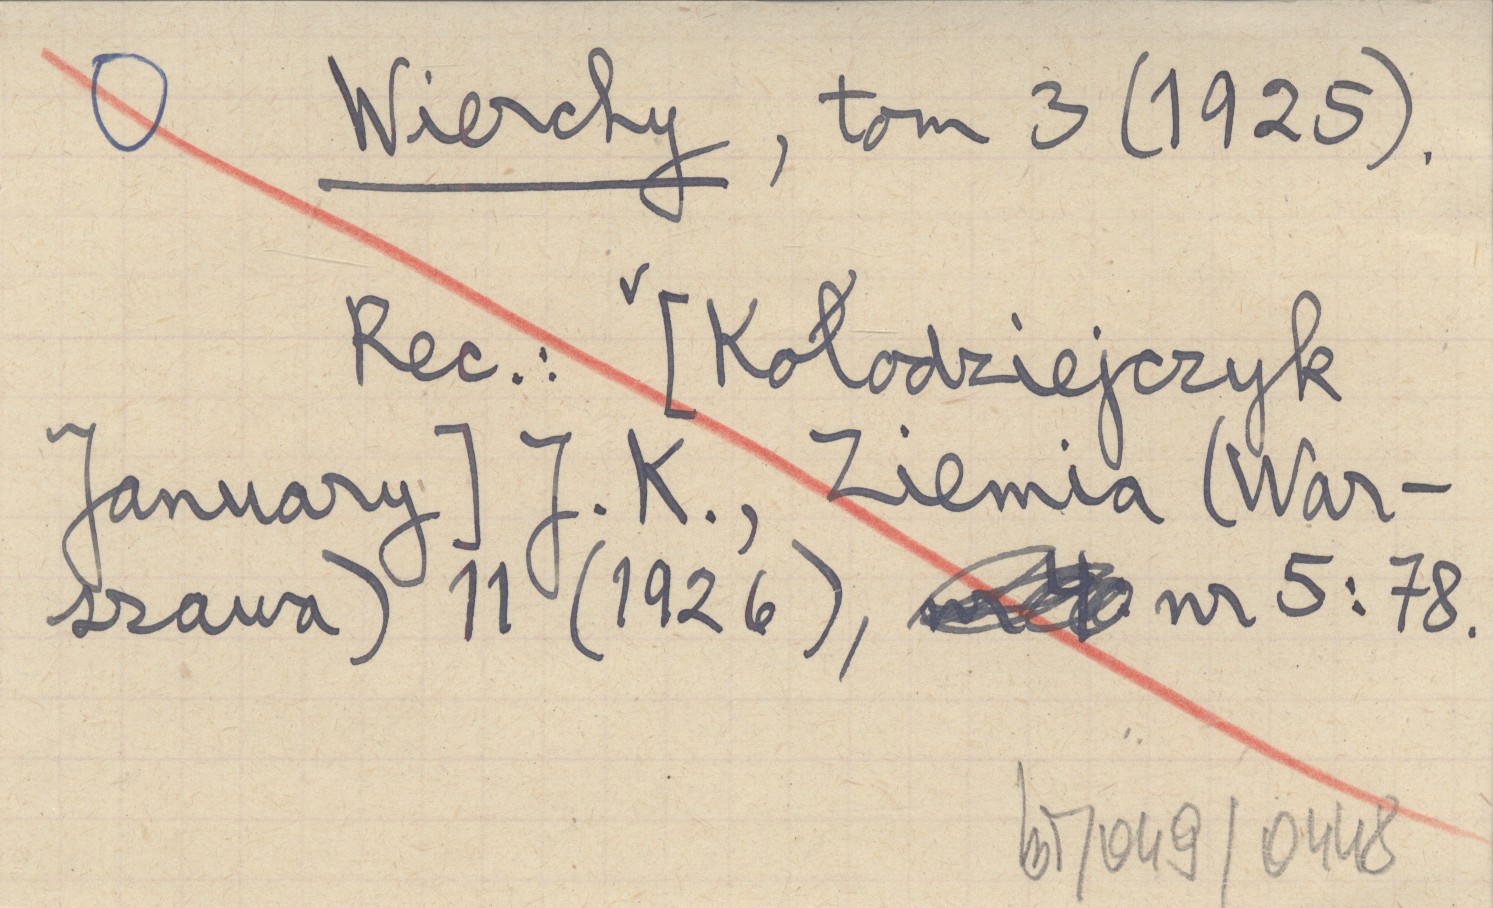 Wierchy, tom 3 (1925).
Rec.: [Kołodziejczyk
January] J. K., Ziemia (War-
szawa) 11 (1926), nr 5: 78.
/049/0448